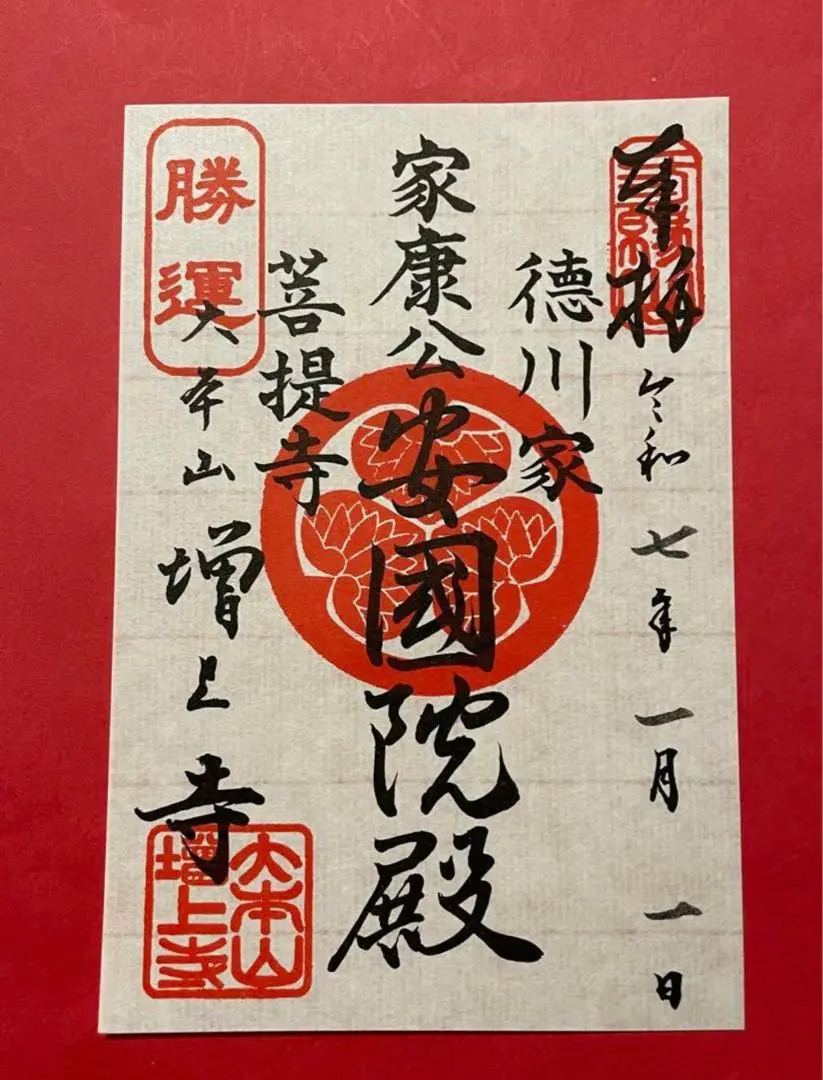 奉拝
令和七年一月一日
徳川家
家康公
安國院殿
菩提寺
勝運
大本山
増上寺
大本山
増上寺